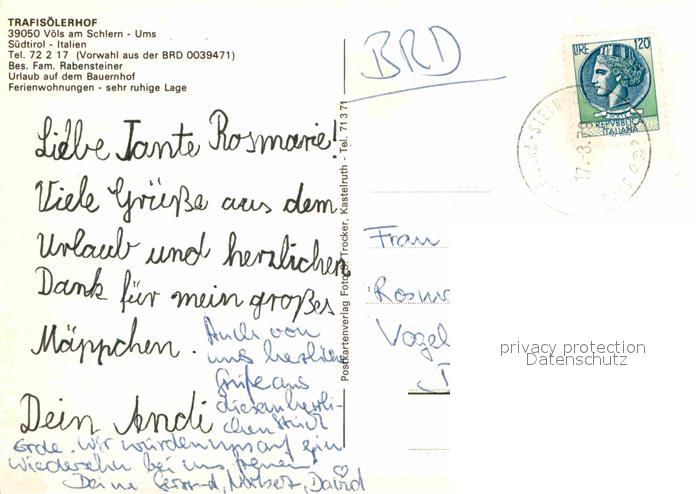 TRAFISÖLERHOF
39050 Völs am Schlern - Ums
Südtirol - Italien
Tel. 72 2 17 (Vorwahl aus der BRD 0039471)
Bes. Fam. Rabensteiner
Urlaub auf dem Bauernhof
Ferienwohnungen - sehr ruhige Lage
BRD
LIRE 120
POSTE
REPUBBLICA
ITALIANA
Liebe Tante Rosmarie!
Viele Grüße aus dem
Urlaub und herzlichen
Dank für mein großes
Mäppchen.
Dein Andi
Auch von
uns herzliche
Grüße aus
diesem herrli-
chen Stück
Erde. Wir würden uns auf ein
Wiedersehn bei uns freuen!
Deine Norbert, David
Postkartenverlag Foto G. Trocker, Kastelruth - Tel. 71 3 71
Frau
Rosmar
Vogel
privacy protection
Datenschutz